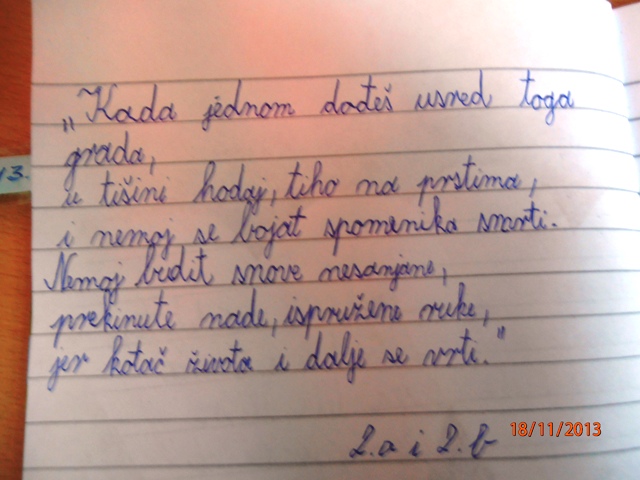 „Kada jednom dođeš usred toga
grada,
u tišini hodaj, tiho na prstima,
i nemoj se bojat spomenika smrti.
Nemoj budit snove nesanjane,
prekinute nade, ispružene ruke,
jer kotač života i dalje se vrti."
2.a i 2.b
18/11/2013
13.